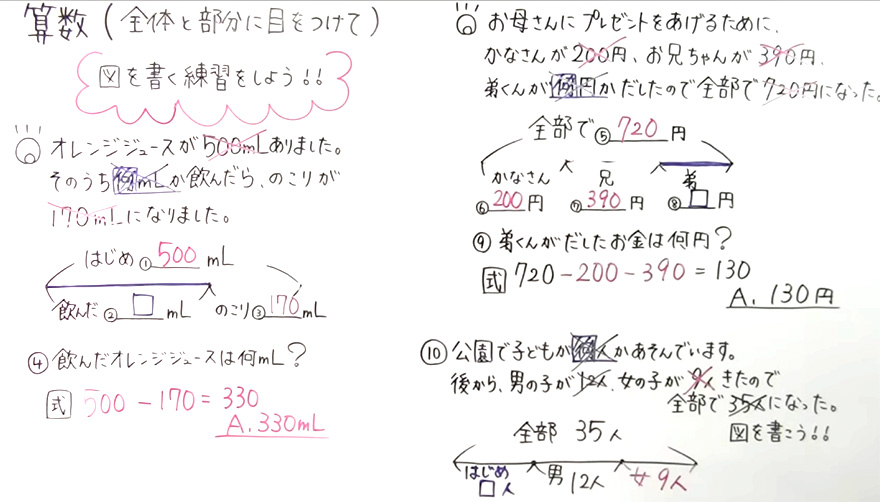 算数(全体と部分に目をつけて)
図を書く練習をしよう!!
オレンジジュースが500mLありました。
そのうち何mLか飲んだら、のこりが
170mLになりました。
はじめ ① 500 mL
飲んだ ② □ mL のこり ③ 170 mL
④ 飲んだオレンジジュースは何mL?
式 500 - 170 = 330
A. 330mL
お母さんにプレゼントをあげるために、
かなさんが200円、お兄ちゃんが390円、
弟くんが何円かだしたので全部で720円になった。
全部で ⑤ 720 円
かなさん 兄 弟
⑥ 200 円 ⑦ 390 円 ⑧ □ 円
⑨ 弟くんがだしたお金は何円?
式 720 - 200 - 390 = 130
A. 130円
⑩ 公園で子どもが何人かあそんでいます。
後から、男の子が12人、女の子が9人きたので
全部で35人になった。
図を書こう!!
全部 35人
はじめ □人 男12人 女9人